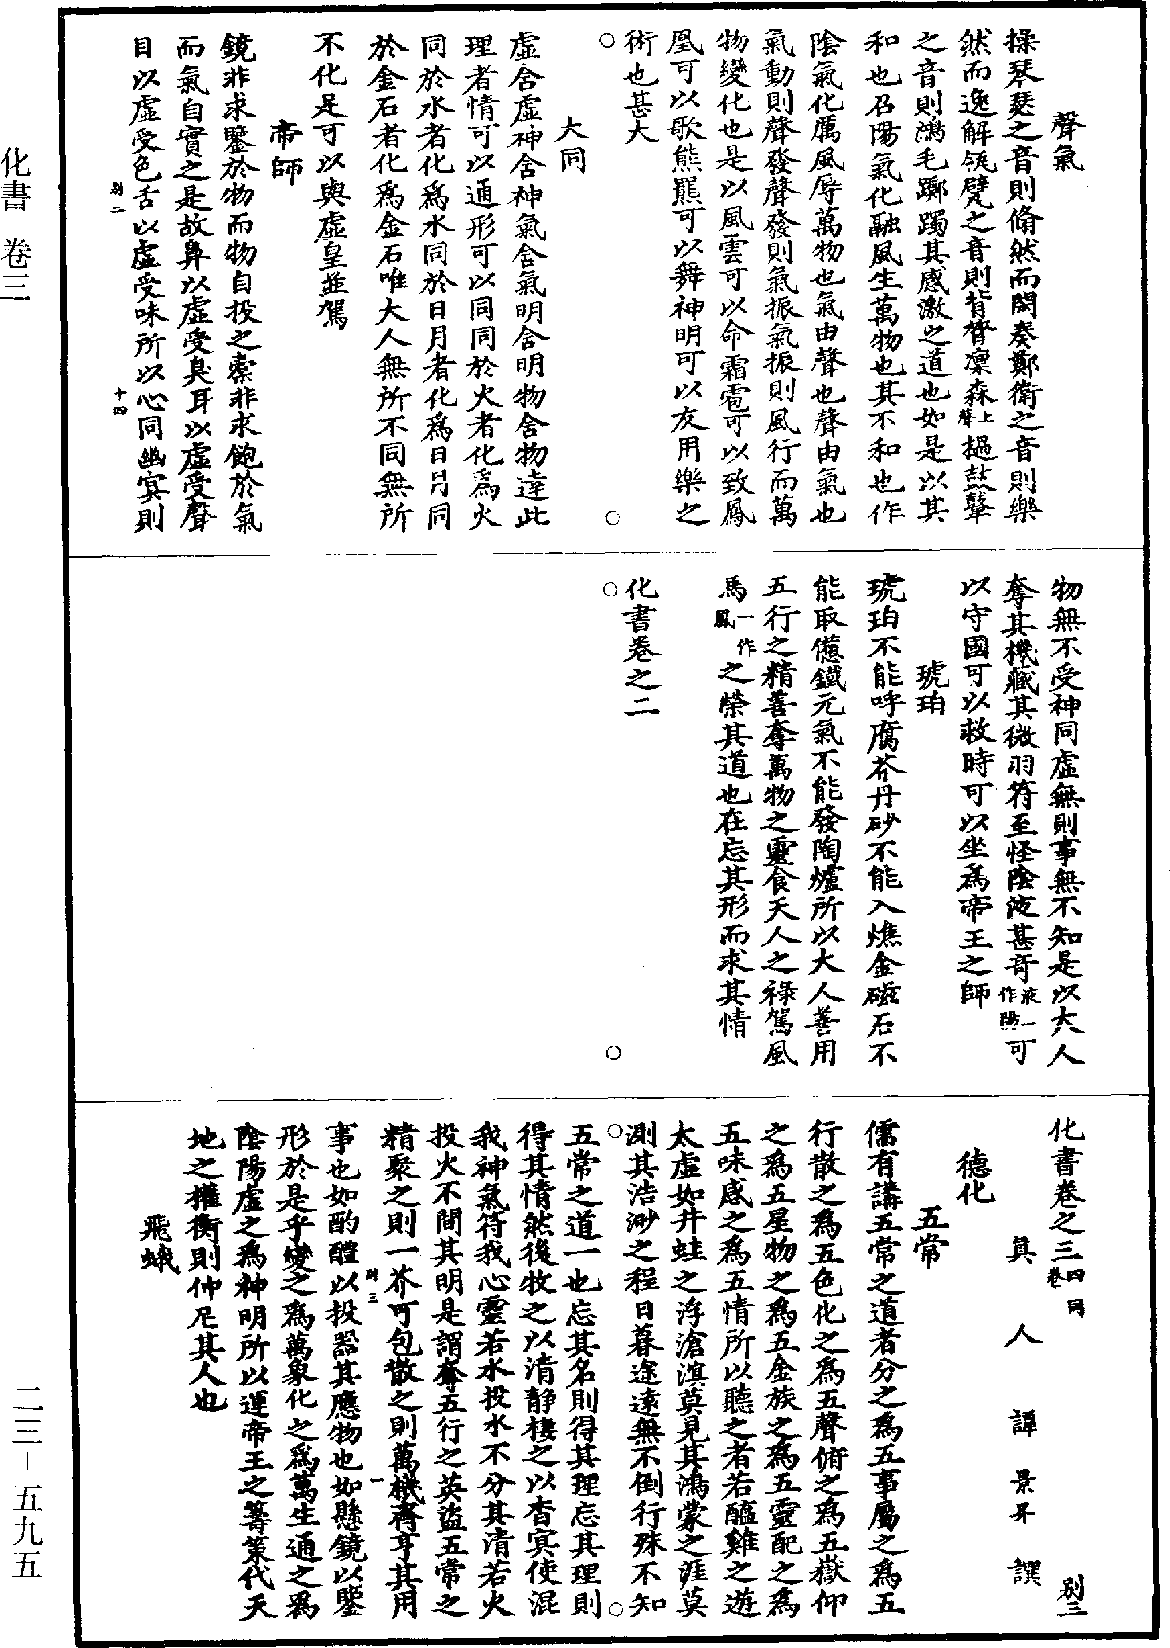 化書　卷三
聲氣
操琴瑟之音則翛然而閑奏鄭衛之音則樂
然而逸解瓴甓之音則背膂凛森上聲撾鼓鼙
之音則鴻毛躑躅其感激之道也如是以其
和也召陽氣化融風生萬物也其不和也作
陰氣化厲風辱萬物也氣由聲也聲由氣也
氣動則聲發聲發則氣振氣振則風行而萬
物變化也是以風雲可以命霜雹可以致鳳
凰可以歌熊羆可以舞神明可以友用樂之
術也甚大
大同
虛含虛神含神氣含氣明含明物含物達此
理者情可以通形可以同同於火者化爲火
同於水者化爲水同於日月者化爲日月同
於金石者化爲金石唯大人無所不同無所
不化是可以與虛皇並駕
帝師
鏡非求鑒於物而物自投之橐非求飽於氣
而氣自實之是故鼻以虛受臭耳以虛受聲
目以虛受色舌以虛受味所以心同幽冥則
別二　十四
物無不受神同虛無則事無不知是以大人
奪其機藏其微羽符至怪陰液甚奇液一作陽可
以守國可以救時可以坐爲帝王之師
琥珀
琥珀不能呼腐芥丹砂不能入燋金磁石不
能取憊鐵元氣不能發陶爐所以大人善用
五行之精善奪萬物之靈食天人之祿駕風
馬一作鳳之榮其道也在忘其形而求其情
化書卷之二
化書卷之三四卷同　別三
眞人譚景昇譔
德化
五常
儒有講五常之道者分之爲五事屬之爲五
行散之爲五色化之爲五聲俯之爲五嶽仰
之爲五星物之爲五金族之爲五靈配之爲
五味感之爲五情所以聽之者若醯雞之遊
太虛如井蛙之浮滄溟莫見其鴻蒙之涯莫
測其浩渺之程日暮途遠無不倒行殊不知
五常之道一也忘其名則得其理忘其理則
得其情然後牧之以清靜棲之以杳冥使混
我神氣符我心靈若水投水不分其清若火
投火不間其明是謂奪五行之英盜五常之
精聚之則一芥可包散之則萬機齊亨其用
別三　一
事也如酌醴以投器其應物也如懸鏡以鑒
形於是乎變之爲萬象化之爲萬生通之爲
陰陽虛之爲神明所以運帝王之籌策代天
地之權衡則仲尼其人也
飛蛾
二三－五九五